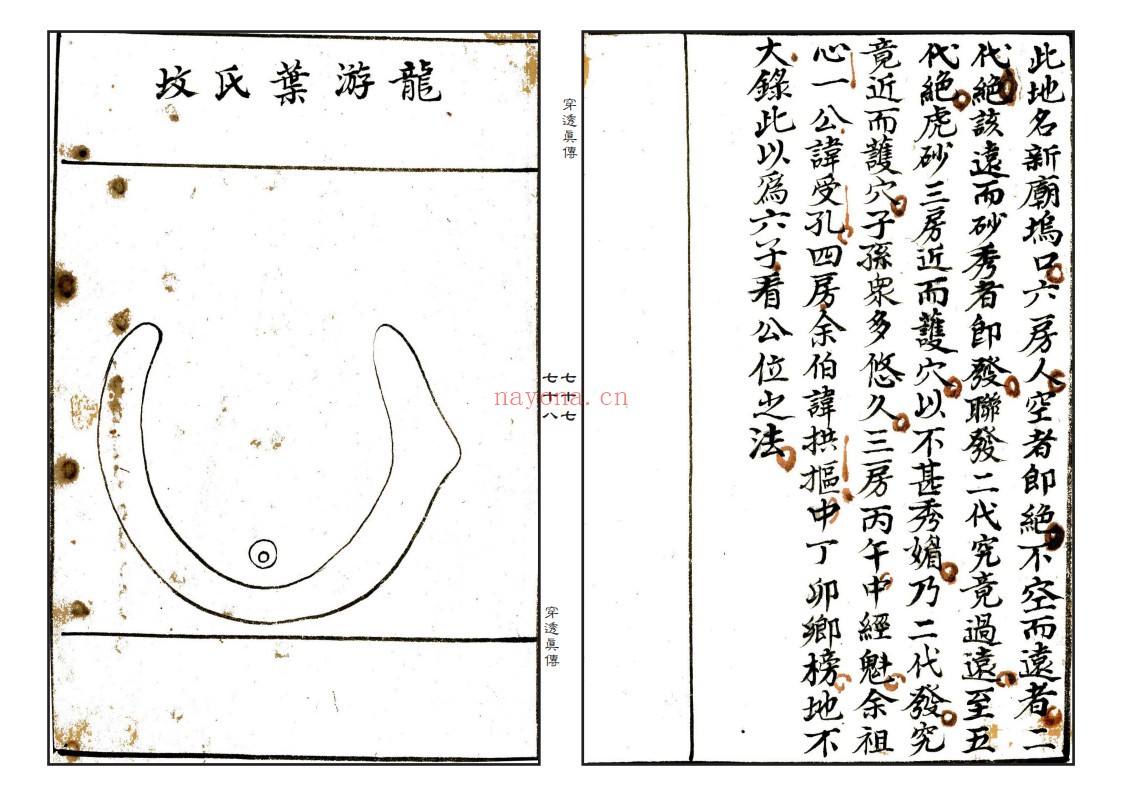 此地名新廟塢口六房人空者即絕不空而遠者二
代絕該遠而砂秀者即發聯發二代究竟過遠至五
代絕虎砂三房近而護穴以不甚秀媚乃二代發究
竟近而護穴子孫衆多悠久三房丙午中經魁余祖
心一公諱受孔四房余伯諱拱摳中丁卯鄉榜地不
大錄此以爲六子看公位之法
穿透眞傳
七十七
七十八
nayona.cn
穿透眞傳
龍游葉氏坟